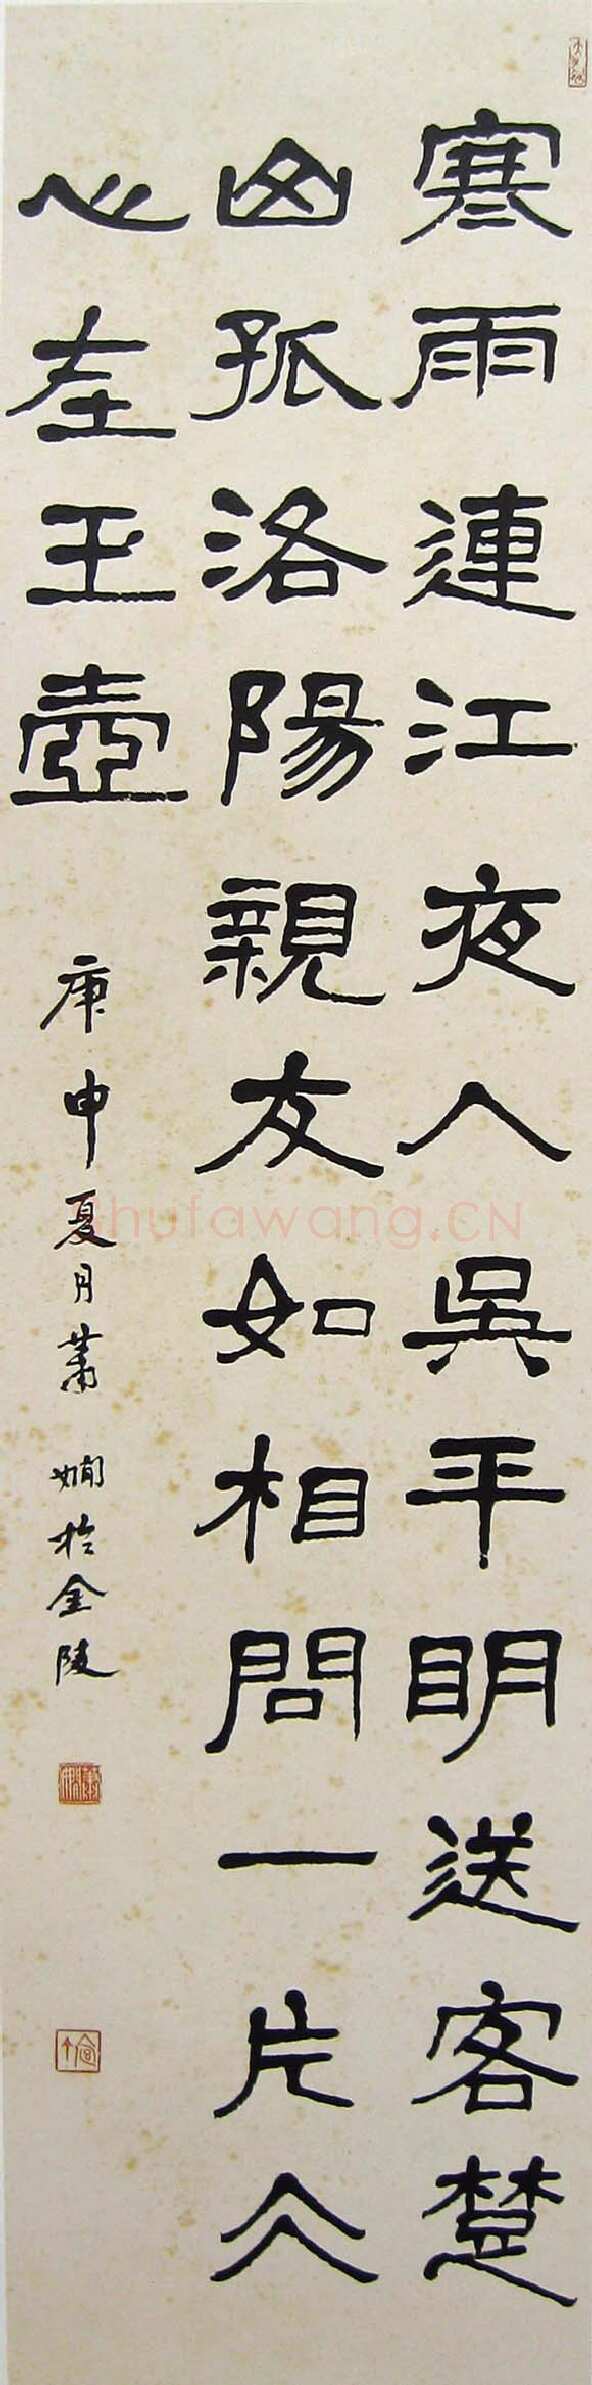 寒雨連江夜入吳平明送客楚
山孤洛陽親友如相問一片仌
心在玉壺
庚申夏月蕭嫻於金陵
蕭嫻
Shufawang.CN